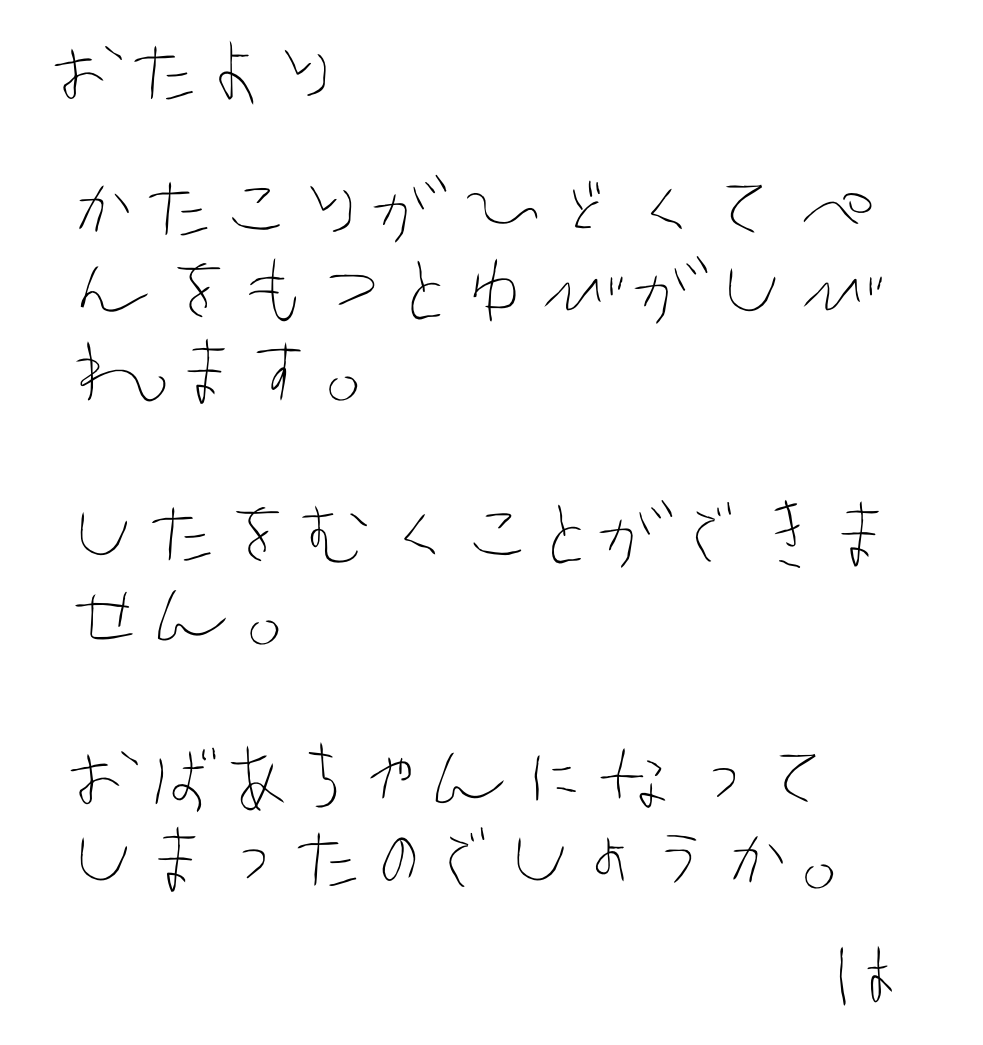 おたより
かたこりがひどくてぺ
んをもつとゆびがしび
れます。
したをむくことができま
せん。
おばあちゃんになって
しまったのでしょうか。
は